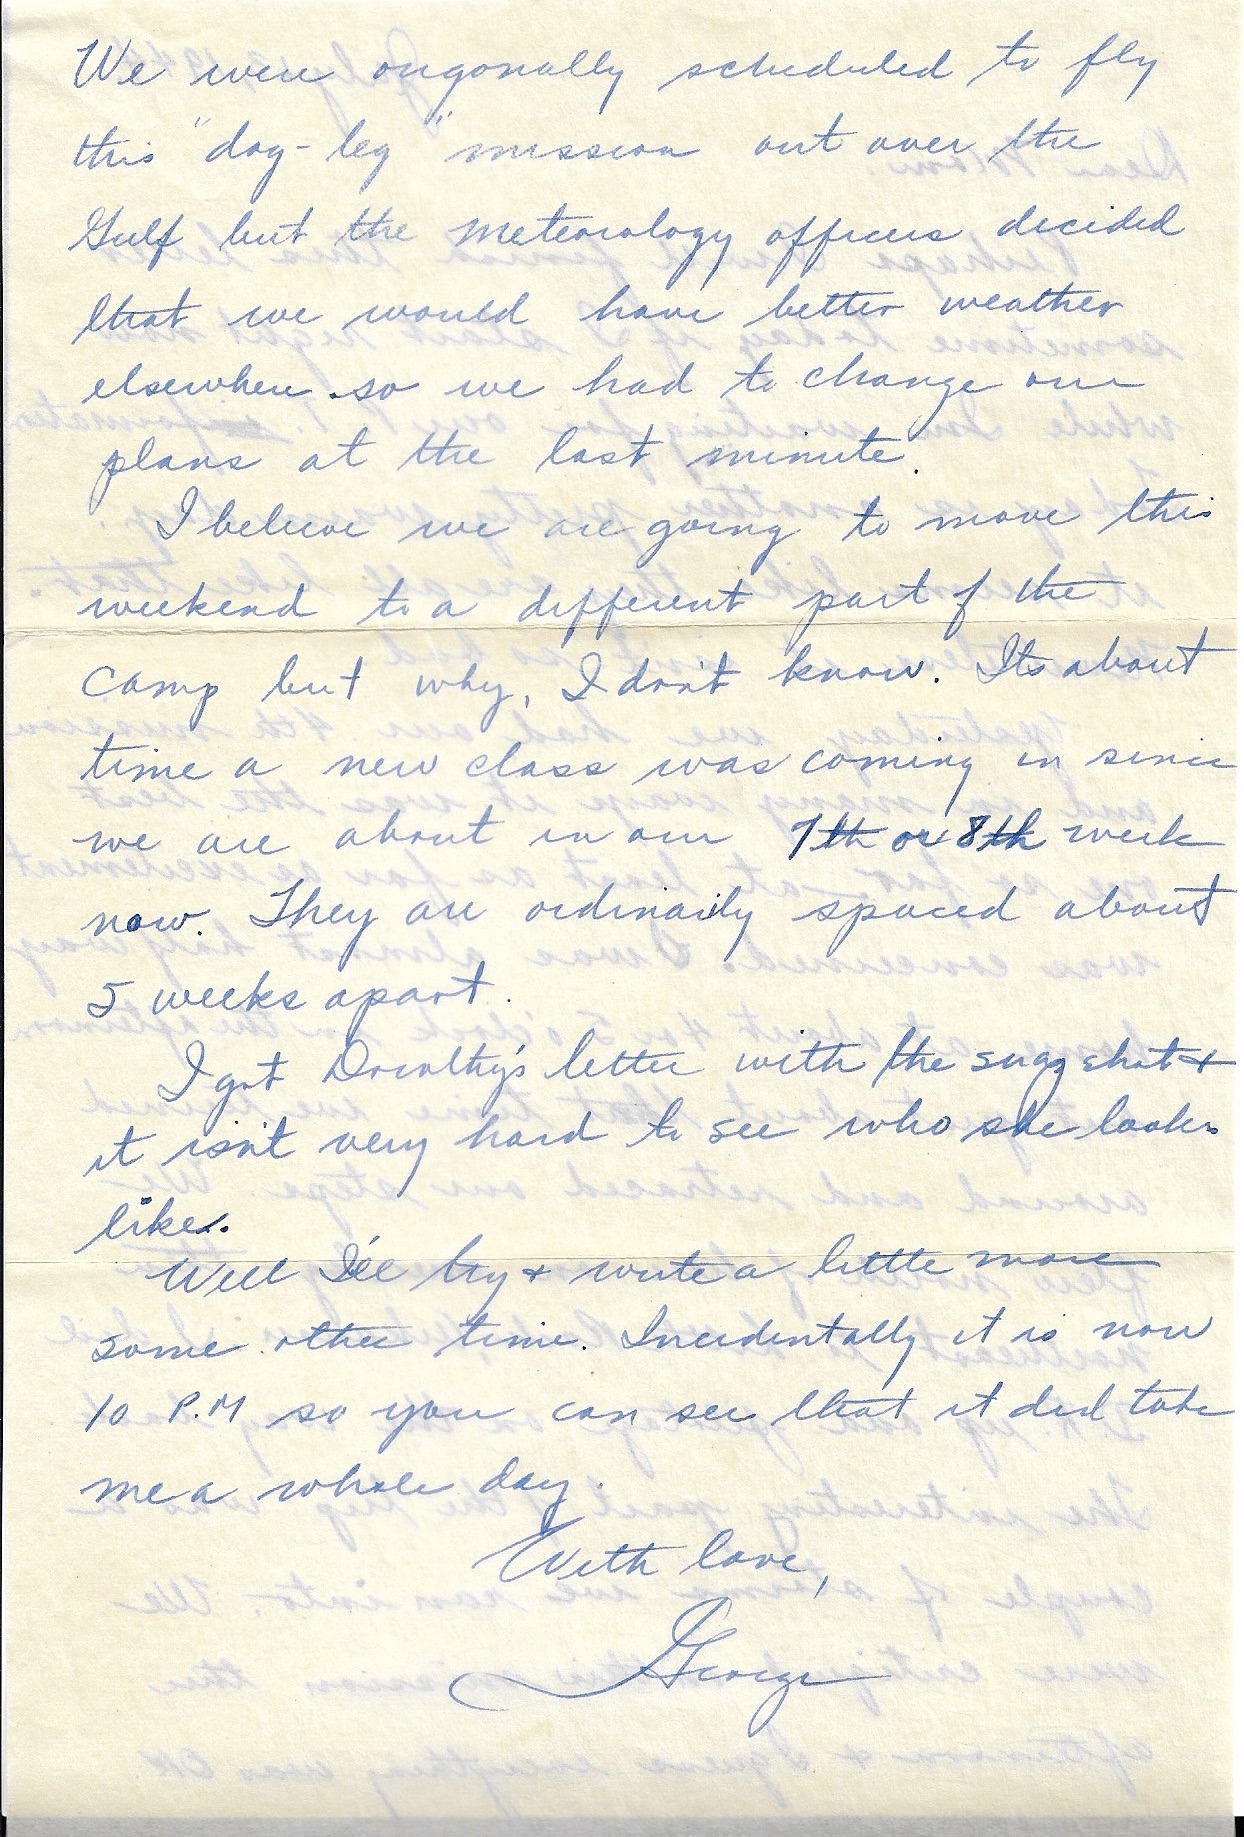 We were origonally scheduled to fly
this "dog-leg" mission out over the
Gulf but the meteorology officers decided
that we would have better weather
elsewhere so we had to change our
plans at the last minute.
I believe we are going to move this
weekend to a different part of the
camp but why, I don't know. Its about
time a new class was coming in since
we are about in our 7th or 8th week
now. They are ordinarily spaced about
5 weeks apart.
I got Dorothy's letter with the snapshot &
it isn't very hard to see who she looks
like.
Well I'll try & write a little more
some other time. Incidentally it is now
10 P.M so you can see that it did take
me a whole day.
With love,
George